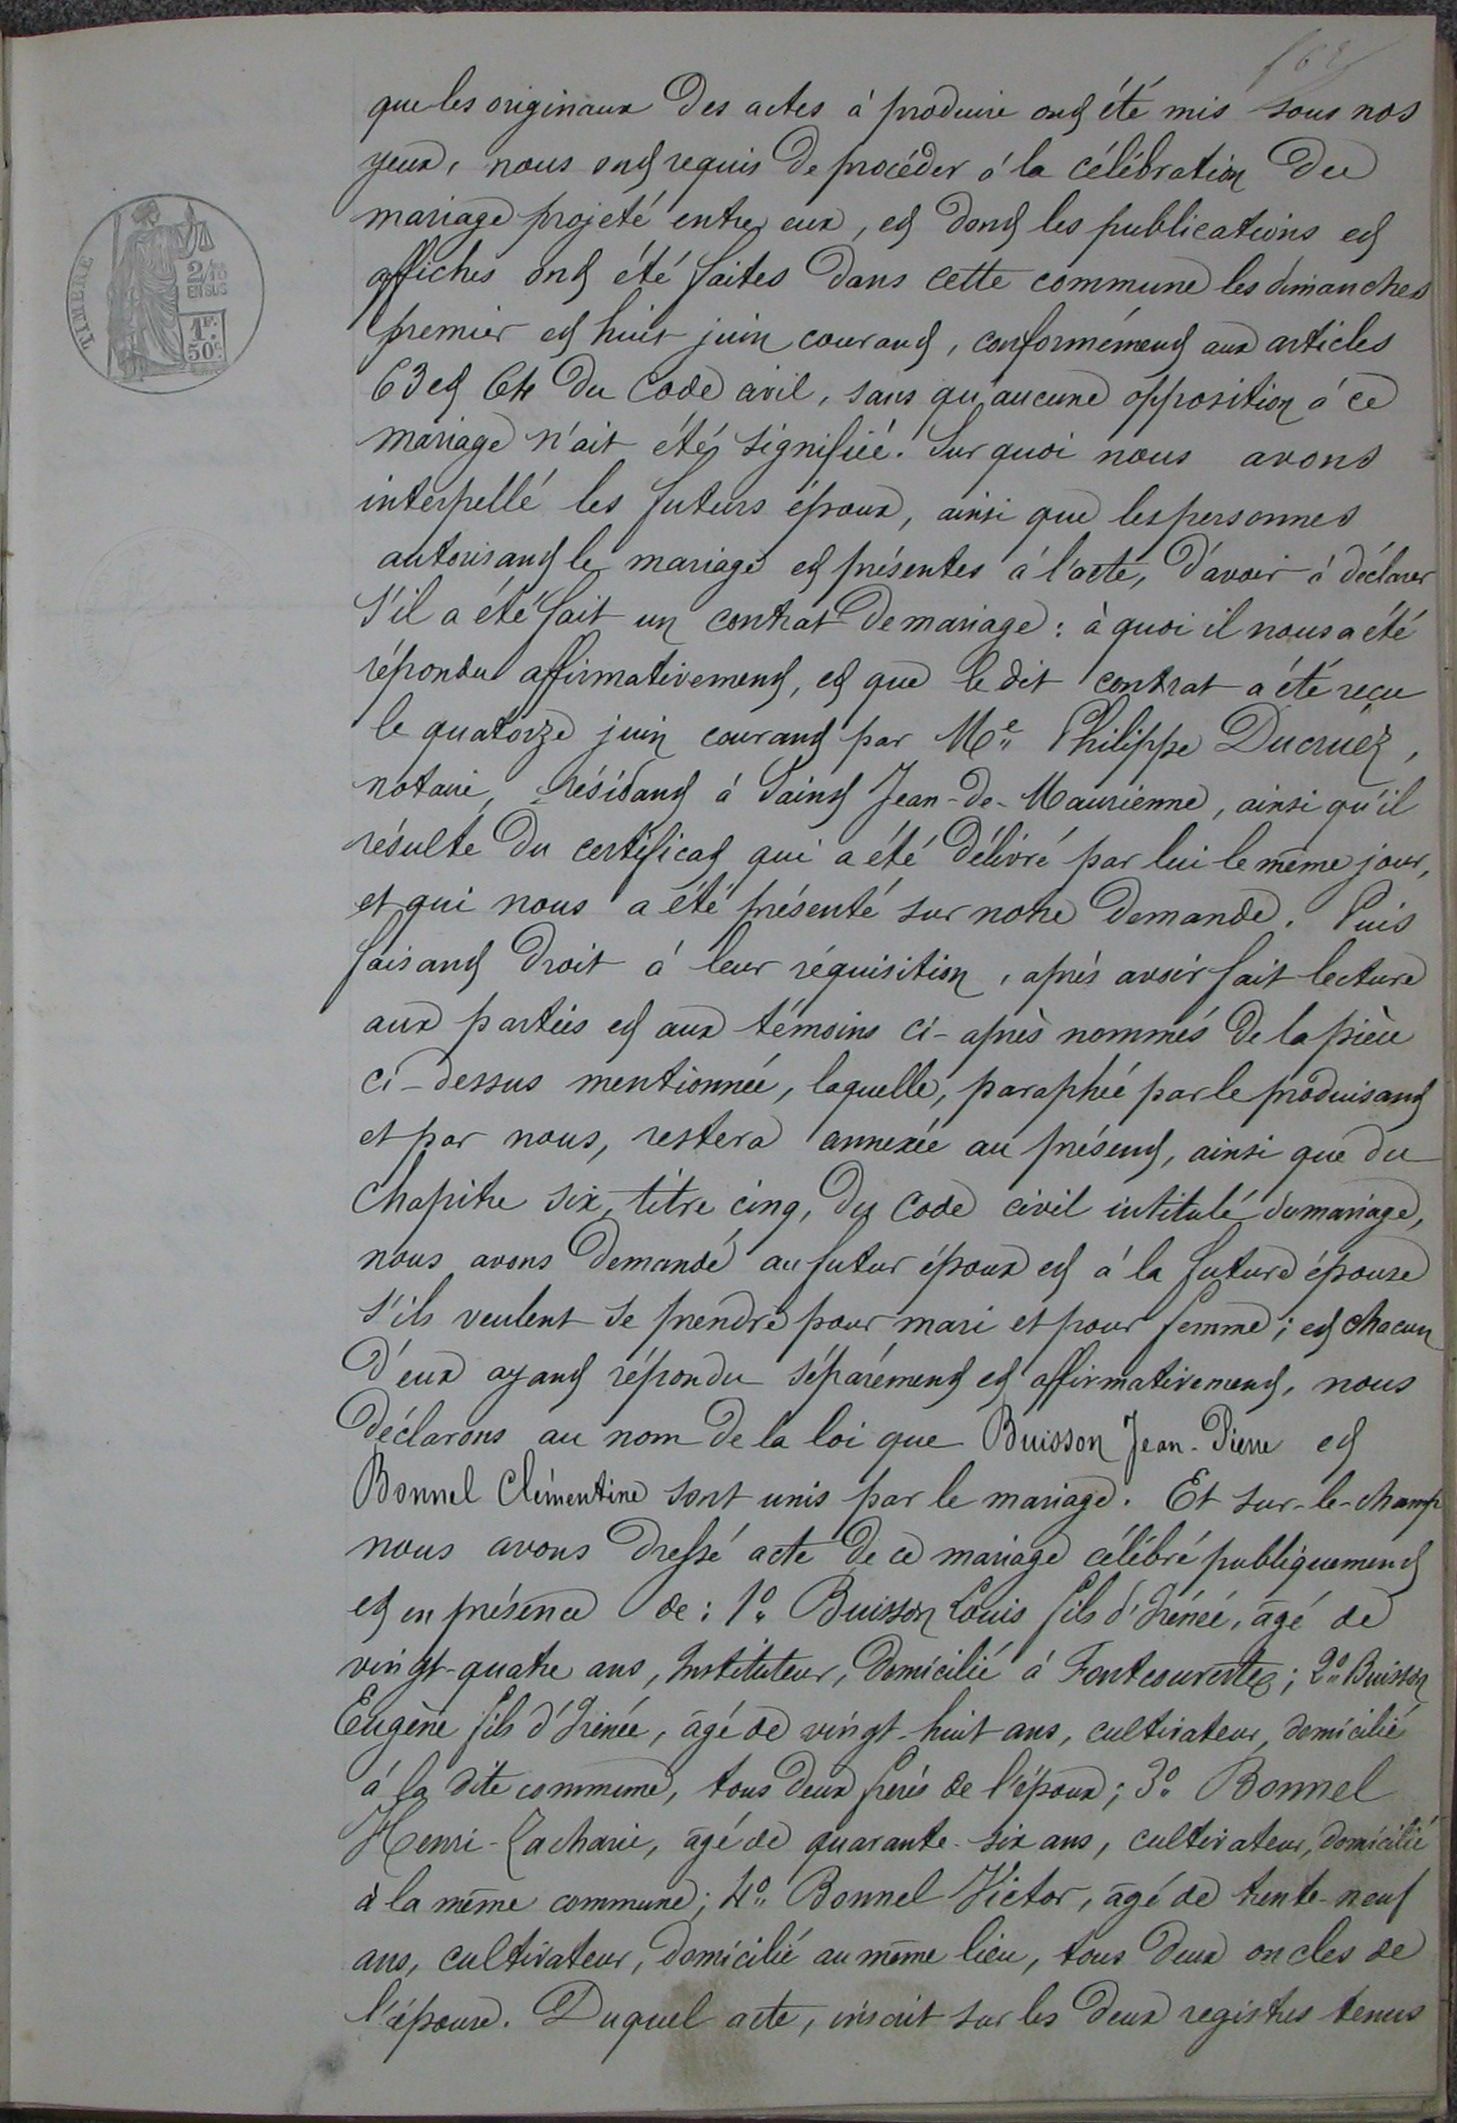 que les originaux des actes à produire ont été mis sous nos
yeux, nous ont requis de procéder à la célébration du
mariage projeté entre eux, et dont les publications et
affiches ont été faites dans cette commune les dimanches
premier et huit juin courant, conformément aux articles
63 et 64 du Code civil, sans qu'aucune opposition à ce
mariage n'ait été signifiée. Sur quoi nous avons
interpellé les futurs époux, ainsi que les personnes
autorisant le mariage et présentes à l'acte, d'avoir à déclarer
s'il a été fait un contrat de mariage : à quoi il nous a été
répondu affirmativement, et que le dit contrat a été reçu
le quatorze juin courant par Me Philippe Ducruez,
notaire, résidant à Saint Jean-de-Maurienne, ainsi qu'il
résulte du certificat qui a été délivré par lui le même jour,
et qui nous a été présenté sur notre demande. Puis
faisant droit à leur réquisition, après avoir fait lecture
aux parties et aux témoins ci-après nommés de la pièce
ci-dessus mentionnée, laquelle, paraphée par le produisant
et par nous, restera annexée au présent, ainsi que du
chapitre six, titre cinq, du Code civil intitulé du mariage,
nous avons demandé au futur époux et à la future épouse
s'ils veulent se prendre pour mari et pour femme ; et chacun
d'eux ayant répondu séparément et affirmativement, nous
déclarons au nom de la loi que Buisson Jean-Pierre et
Bonnel Clémentine sont unis par le mariage. Et sur-le-champ
nous avons dressé acte de ce mariage célébré publiquement
et en présence de : 1º Buisson Louis fils d'Irénée, âgé de
vingt-quatre ans, Instituteur, domicilié à Fontcouverte ; 2º Buisson
Eugène fils d'Irénée, âgé de vingt-huit ans, cultivateur, domicilié
à la dite commune, tous deux frères de l'époux ; 3º Bonnel
Henri-Zacharie, âgé de quarante-six ans, cultivateur, domicilié
à la même commune ; 4º Bonnel Victor, âgé de trente-neuf
ans, cultivateur, domicilié au même lieu, tous deux oncles de
l'épouse. Duquel acte, inscrit sur les deux registres tenus
TIMBRE
2/10
EN SUS
1F.
50C.